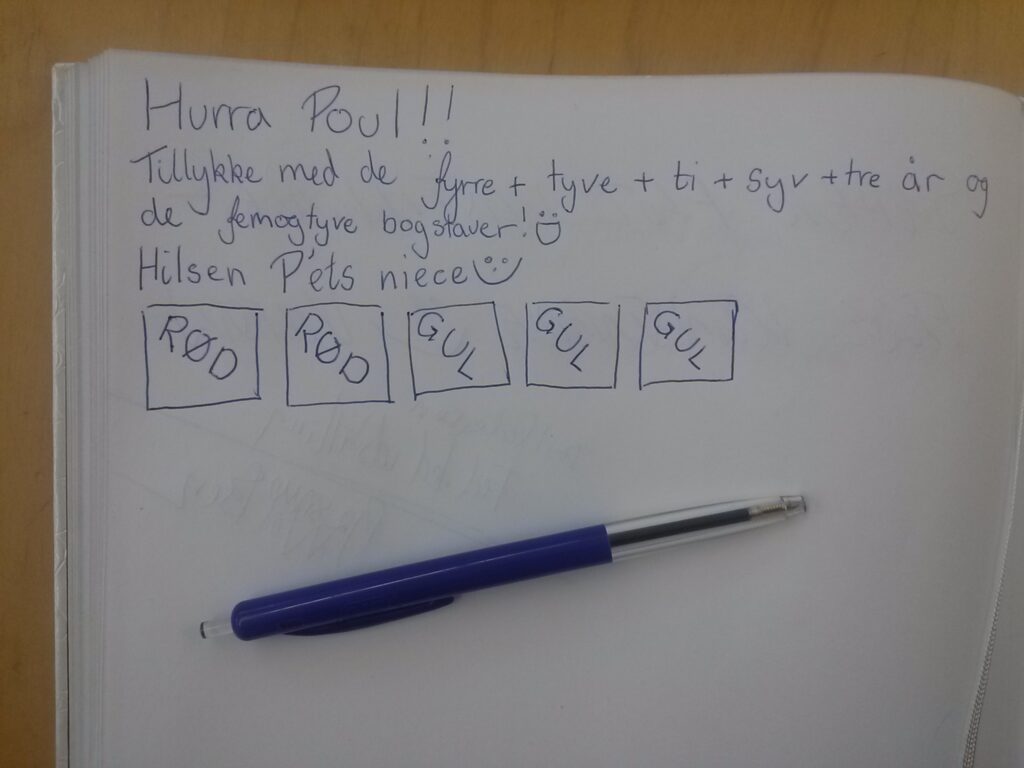 Hurra Poul!!!
Tillykke med de fyrre + tyve + ti + syv + tre år og
de femogtyve bogstaver!
Hilsen P'ets niece
RØD RØD GUL GUL GUL